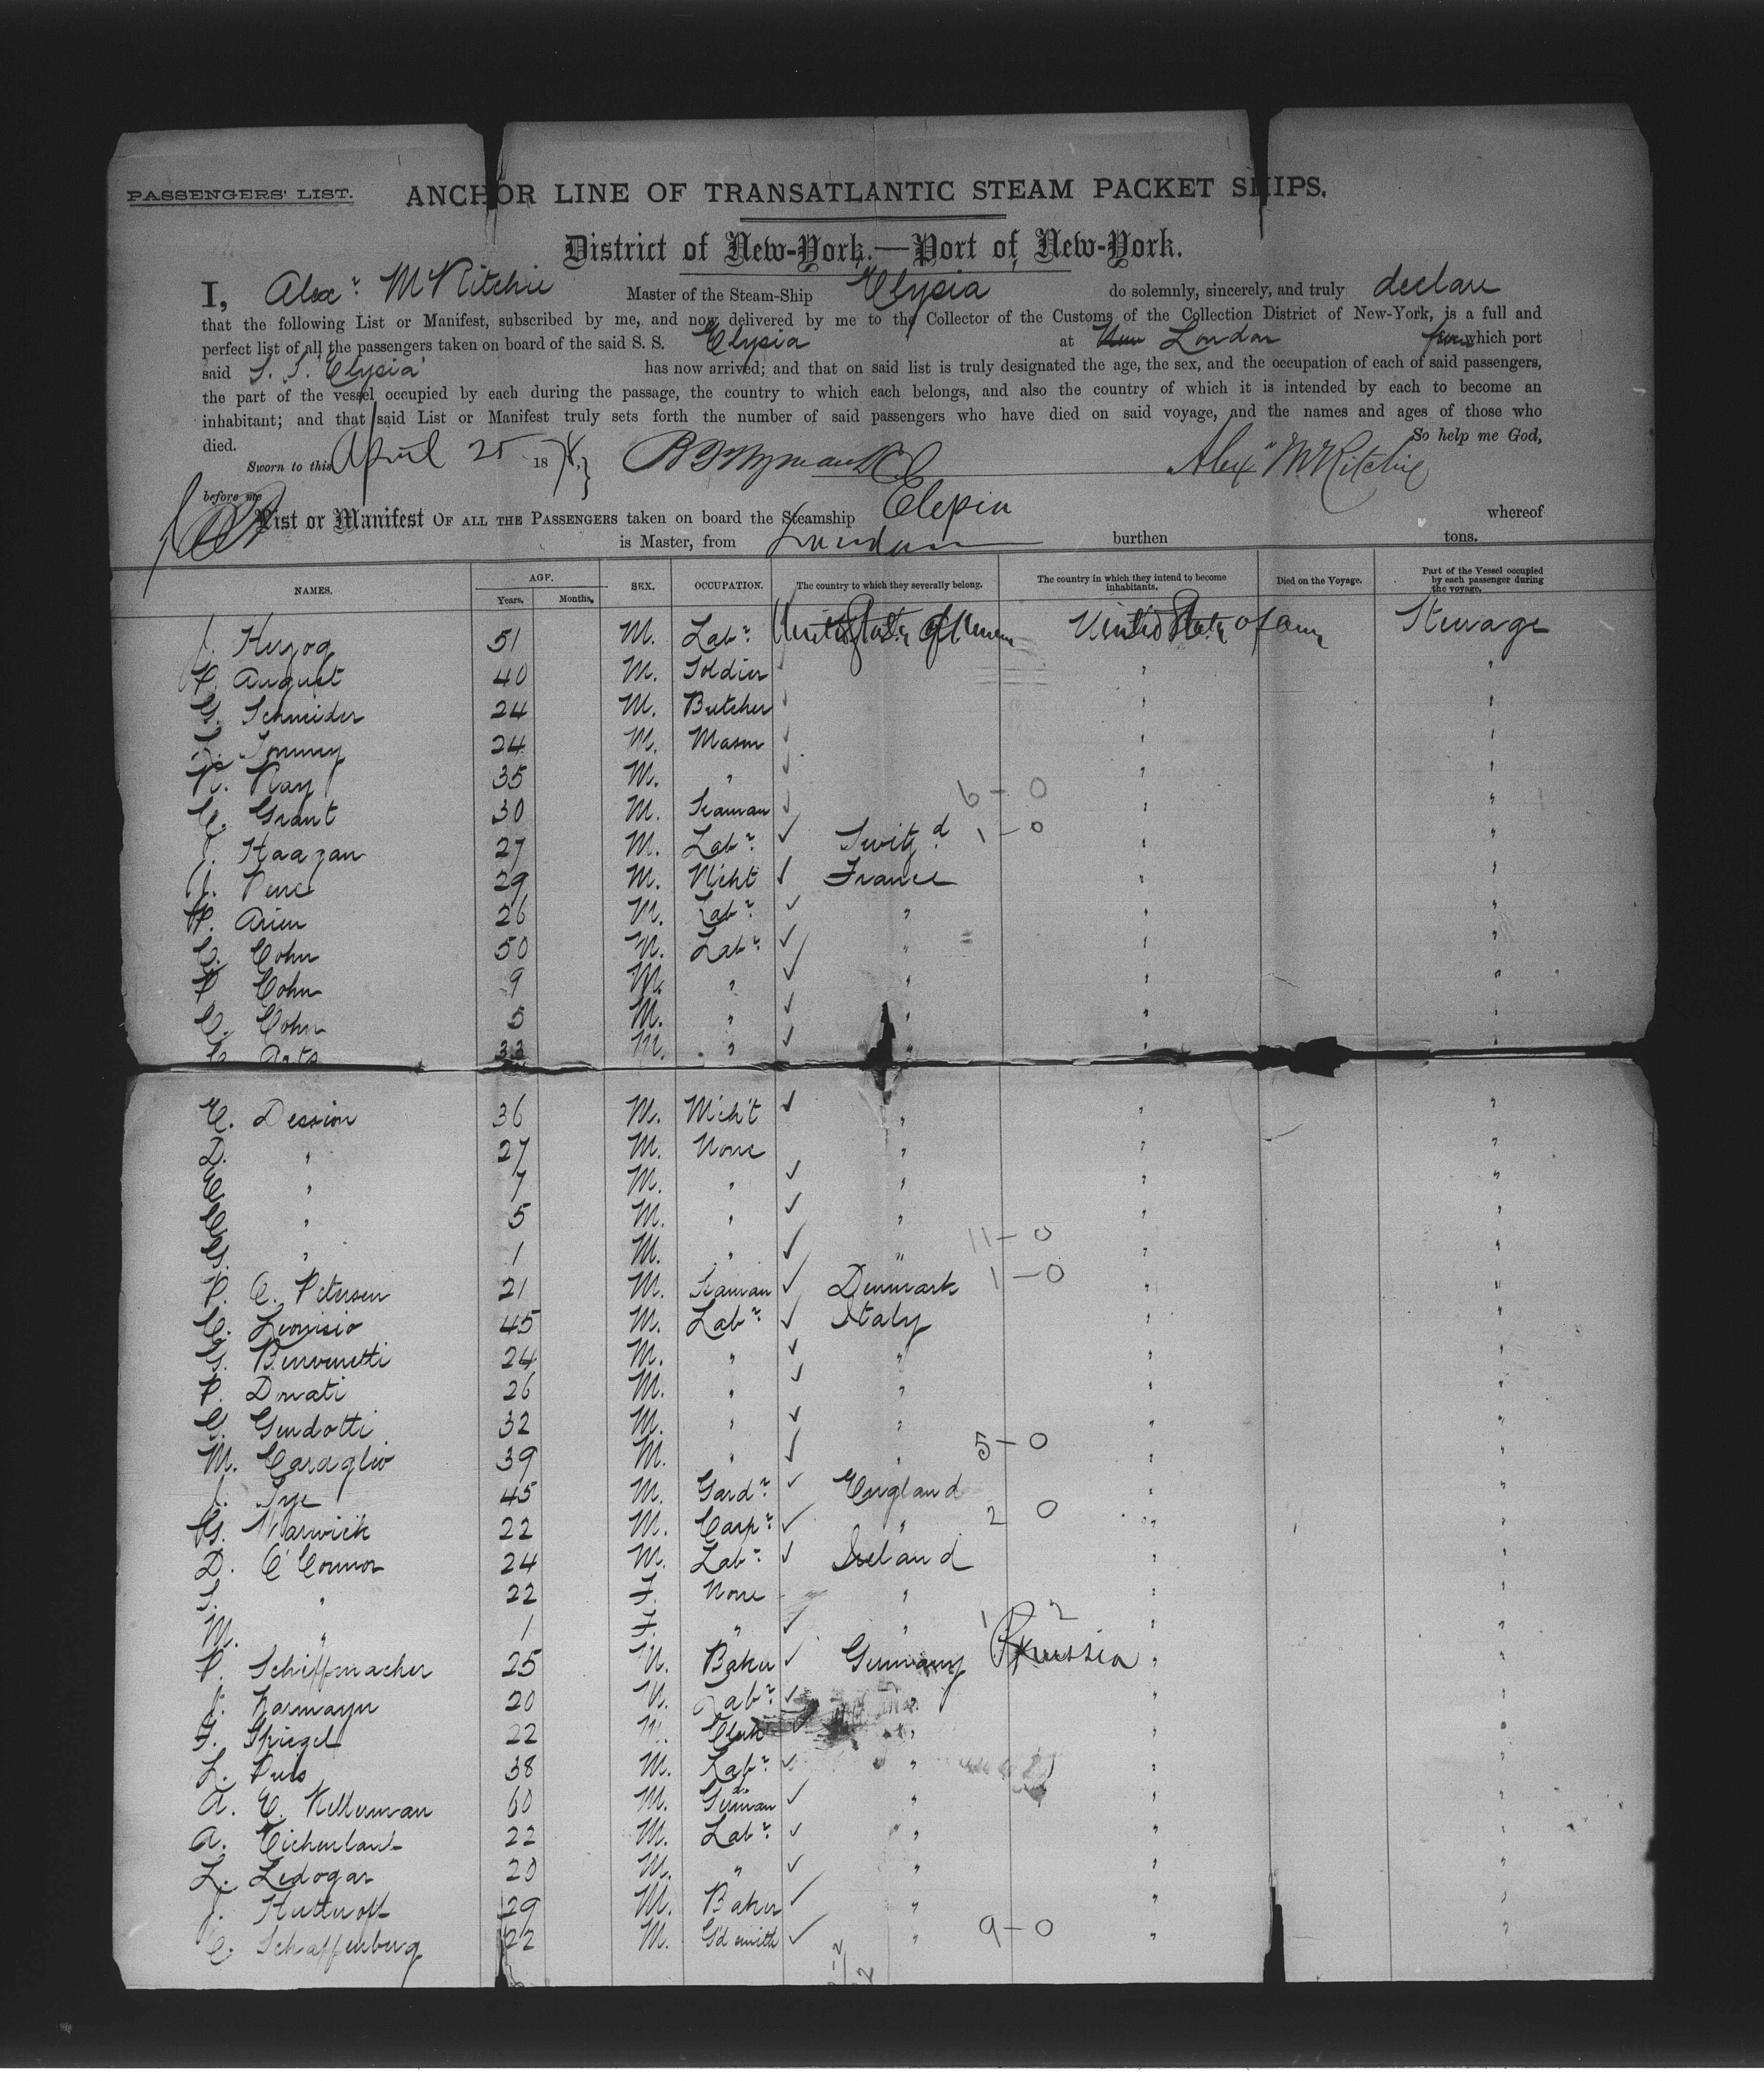 PASSENGERS' LIST.
ANCHOR LINE OF TRANSATLANTIC STEAM PACKET SHIPS.
District of New-York.—Port of New-York.
I, Alexr McRitchie Master of the Steam-Ship Elysia do solemnly, sincerely, and truly declare
that the following List or Manifest, subscribed by me, and now delivered by me to the Collector of the Customs of the Collection District of New-York, is a full and
perfect list of all the passengers taken on board of the said S. S. Elysia at London from which port
said S. S. Elysia has now arrived; and that on said list is truly designated the age, the sex, and the occupation of each of said passengers,
the part of the vessel occupied by each during the passage, the country to which each belongs, and also the country of which it is intended by each to become an
inhabitant; and that said List or Manifest truly sets forth the number of said passengers who have died on said voyage, and the names and ages of those who
died. So help me God,
Sworn to this April 25 1878, Alexr McRitchie
before me
List or Manifest OF ALL THE PASSENGERS taken on board the Steamship Elysia whereof
is Master, from London burthen tons.
NAMES. AGE. Years. Months. SEX. OCCUPATION. The country to which they severally belong. The country in which they intend to become inhabitants. Died on the Voyage. Part of the Vessel occupied by each passenger during the voyage.
J. Herzog 51 M. Labr United States of Amer United States of Amer Steerage
P. August 40 M. Soldier " "
G. Schneider 24 M. Butcher " "
24 M. Mason " "
R. Ray 35 M. " " "
C. Grant 30 M. Seaman 6-0 " "
J. Haazan 27 M. Labr Switzd 1-0 " "
J. 29 M. Mcht France " "
P. Arien 26 M. Labr " " "
C. Cohn 50 M. Labr " " "
P Cohn 9 M. " " " "
C. Cohn 5 M. " " " "
C. Arts 33 M. " " " "
E. Dession 36 M. Mcht " " "
D. " 27 M. None " " "
C. " 7 M. " " " "
C. " 5 M. " " " "
G. " 1 M. " " 11-0 " "
P. C. Petersen 21 M. Seaman Denmark 1-0 " "
C. Leonisio 45 M. Labr Italy " "
G. Benvenetti 24 M. " " " "
P. Donati 26 M. " " " "
G. Guidotti 32 M. " " " "
M. Caraglio 39 M. " " 5-0 " "
J. Sye 45 M. Gardr England " "
G. Warwick 22 M. Carpr " 2 0 " "
D. O'Connor 24 M. Labr Ireland " "
S. " 22 F. None " " "
M. " 1 F. " " 1 2 " "
P. Schiffmacher 25 M. Baker Germany Prussia " "
J. Kormayer 20 M. Labr " " "
F. Spiegel 22 M. Clerk " " "
L. Puls 38 M. Labr " " "
A. C. Kellerman 60 M. " " "
A. Eichenlaub 22 M. Labr " " "
L. Ledogar 20 M. " " " "
J. Hutteroff 29 M. Baker " " "
C. Schaffenberg 22 M. Gd smith " 9-0 " "